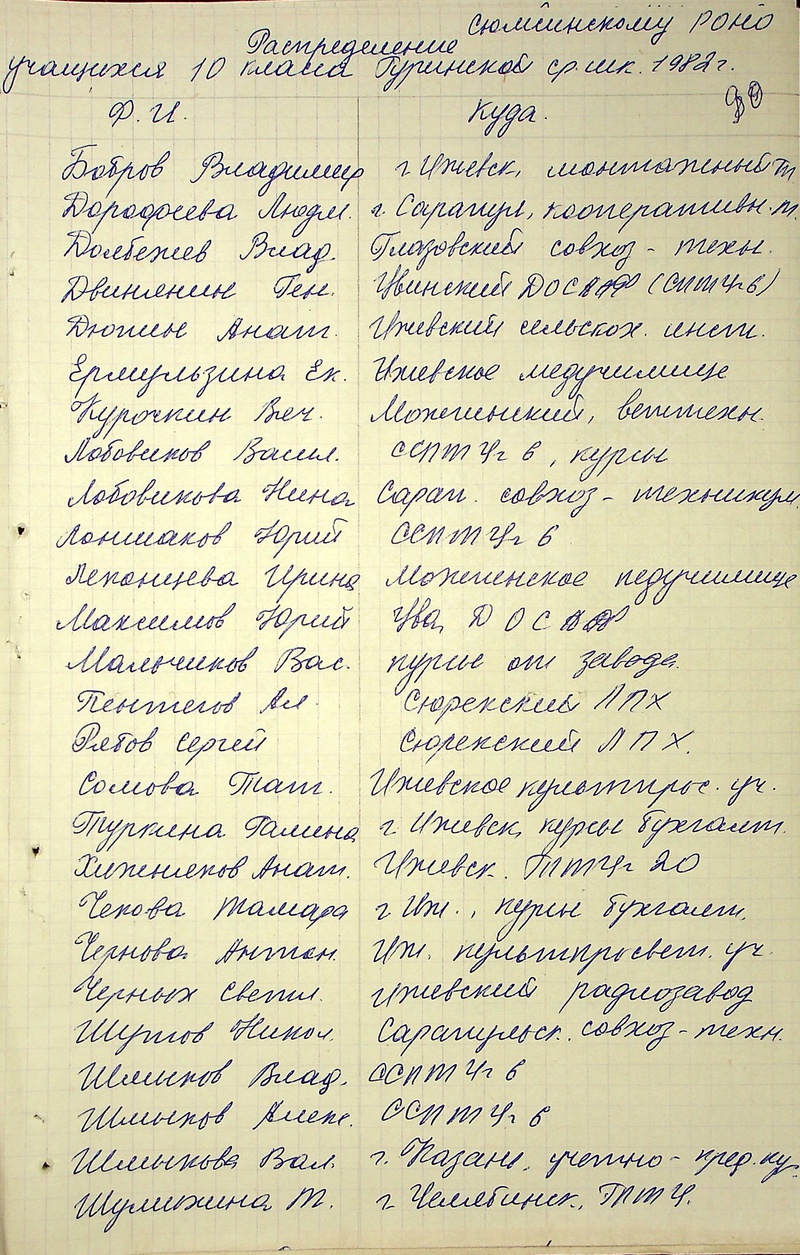 Сюмсинскому РОНО
Распределение
учащихся 10 класса Гуринской ср. шк. 1982 г.
Ф. И. Куда.
Бобров Владимир г. Ижевск, монтажный т.
Дорофеева Людм. г. Сарапул, кооперативн. т.
Долбежев Влад. Глазовский совхоз - техн.
Двинянин Ген. Увинский ДОСААФ (СПТУ-6)
Дютин Анат. Ижевский сельскох. инст.
Ермульзина Ек. Ижевское медучилище
Курочкин Веч. Можгинский, веттехн.
Лобовиков Васил. ССПТУ 6, курсы
Лобовикова Нина Сарап. совхоз - техникум
Лоншаков Юрий ССПТУ 6
Лекомцева Ирина Можгинское педучилище
Максимов Юрий Ува, ДОСААФ
Мальчиков Вас. курсы от завода.
Пентегов Ал. Сюрекский ЛПХ
Рябов Сергей Сюрекский ЛПХ.
Сомова Тат. Ижевское культпрос. уч.
Туркина Галина г. Ижевск, курсы бухгалт.
Хиженяков Анат. Ижевск. ГПТУ 20
Чекова Тамара г. Иж., курсы бухгалт.
Чернова Антон. Иж. культпросвет. уч.
Черных Светл. Ижевский радиозавод
Шутов Никол. Сарапульск. совхоз - техн.
Шмыков Влад. ССПТУ 6
Шмыков Алекс. ССПТУ 6
Шмыкова Вал. г. Казань, учетно - кред. ку
Шулижина Т. г. Челябинск, ГПТУ.